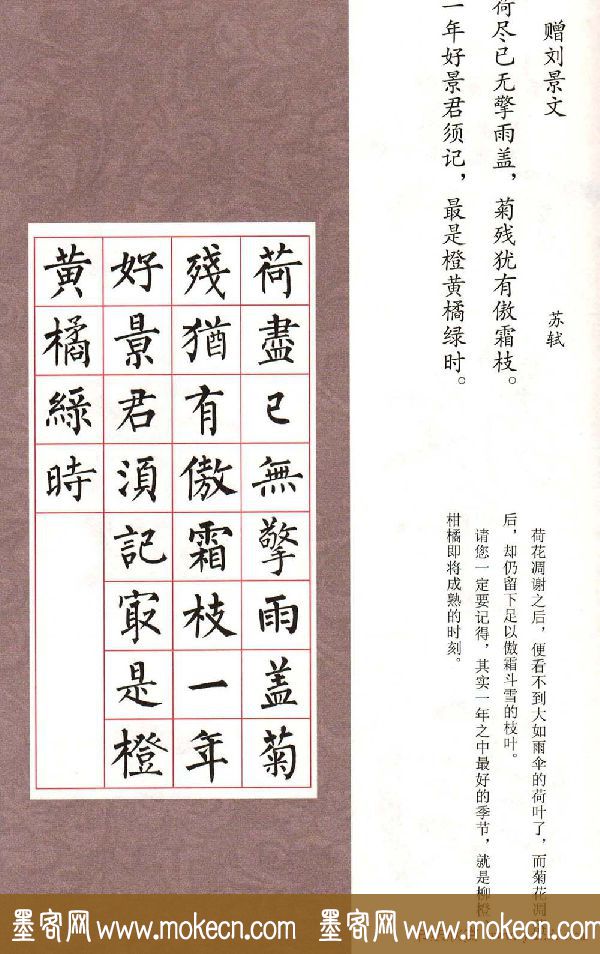 赠刘景文
苏轼
荷尽已无擎雨盖，菊残犹有傲霜枝。
一年好景君须记，最是橙黄橘绿时。
荷花凋谢之后，便看不到大如雨伞的荷叶了，而菊花凋
后，却仍留下足以傲霜斗雪的枝叶。
请您一定要记得，其实一年之中最好的季节，就是柳橙
柑橘即将成熟的时刻。
荷盡已無擎雨盖菊
殘猶有傲霜枝一年
好景君須記㝡是橙
黄橘綠時
墨客网 www.mokecn.com 墨客网 www.mokecn.com